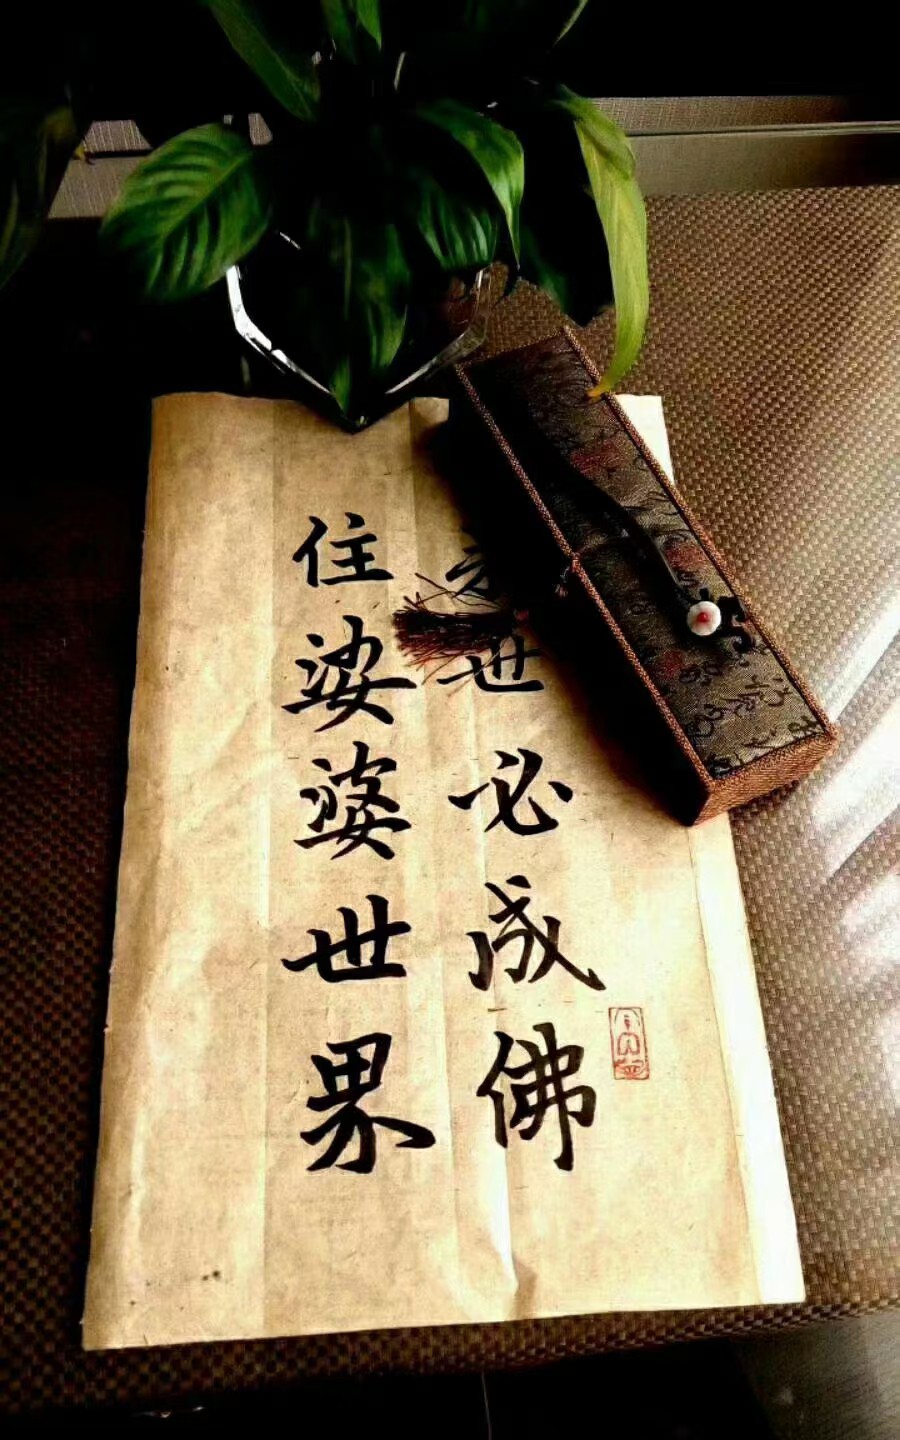 世必成佛
住娑婆世界